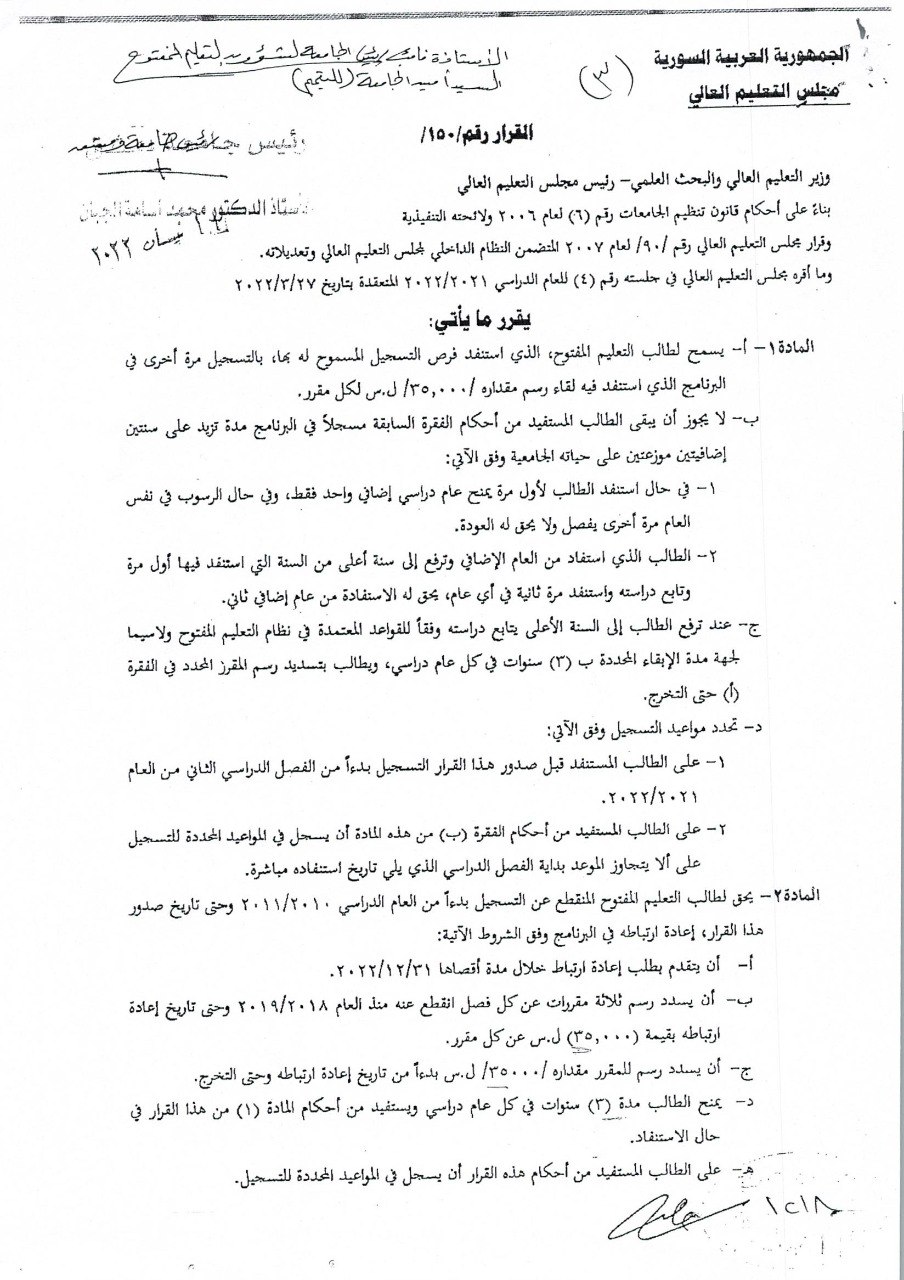 الجمهورية العربية السورية
مجلس التعليم العالي
(٣)
الأستاذة نائب رئيس الجامعة لشؤون التعليم المفتوح
السيد أمين الجامعة (للتعميم)
القرار رقم/١٥٠/
رئيس جامعة دمشق
الأستاذ الدكتور محمد أسامة الجبان
نيسان ٢٠٢٢
وزير التعليم العالي والبحث العلمي– رئيس مجلس التعليم العالي
بناءً على أحكام قانون تنظيم الجامعات رقم (٦) لعام ٢٠٠٦ ولائحته التنفيذية
وقرار مجلس التعليم العالي رقم /٩٠/ لعام ٢٠٠٧ المتضمن النظام الداخلي لمجلس التعليم العالي وتعديلاته.
وما أقره مجلس التعليم العالي في جلسته رقم (٤) للعام الدراسي ٢٠٢٢/٢٠٢١ المنعقدة بتاريخ ٢٠٢٢/٣/٢٧
يقرر ما يأتي:
المادة١– أ– يسمح لطالب التعليم المفتوح، الذي استنفد فرص التسجيل المسموح له بها، بالتسجيل مرة أخرى في
البرنامج الذي استنفد فيه لقاء رسم مقداره /٣٥,٠٠٠/ ل.س لكل مقرر.
ب– لا يجوز أن يبقى الطالب المستفيد من أحكام الفقرة السابقة مسجلاً في البرنامج مدة تزيد على سنتين
إضافيتين موزعتين على حياته الجامعية وفق الآتي:
١– في حال استنفد الطالب لأول مرة يمنح عام دراسي إضافي واحد فقط، وفي حال الرسوب في نفس
العام مرة أخرى يفصل ولا يحق له العودة.
٢– الطالب الذي استفاد من العام الإضافي وترفع إلى سنة أعلى من السنة التي استنفد فيها أول مرة
وتابع دراسته واستنفد مرة ثانية في أي عام، يحق له الاستفادة من عام إضافي ثاني.
ج– عند ترفع الطالب إلى السنة الأعلى يتابع دراسته وفقاً للقواعد المعتمدة في نظام التعليم المفتوح ولاسيما
لجهة مدة الإبقاء المحددة ب (٣) سنوات في كل عام دراسي، ويطالب بتسديد رسم المقرر المحدد في الفقرة
(أ) حتى التخرج.
د– تحدد مواعيد التسجيل وفق الآتي:
١– على الطالب المستنفد قبل صدور هذا القرار التسجيل بدءاً من الفصل الدراسي الثاني من العام
٢٠٢٢/٢٠٢١.
٢– على الطالب المستفيد من أحكام الفقرة (ب) من هذه المادة أن يسجل في المواعيد المحددة للتسجيل
على ألا يتجاوز الموعد بداية الفصل الدراسي الذي يلي تاريخ استنفاده مباشرة.
المادة٢– يحق لطالب التعليم المفتوح المنقطع عن التسجيل بدءاً من العام الدراسي ٢٠١١/٢٠١٠ وحتى تاريخ صدور
هذا القرار، إعادة ارتباطه في البرنامج وفق الشروط الآتية:
أ– أن يتقدم بطلب إعادة ارتباط خلال مدة أقصاها ٢٠٢٢/١٢/٣١.
ب– أن يسدد رسم ثلاثة مقررات عن كل فصل انقطع عنه منذ العام ٢٠١٩/٢٠١٨ وحتى تاريخ إعادة
ارتباطه بقيمة (٣٥,٠٠٠) ل.س عن كل مقرر.
ج– أن يسدد رسم للمقرر مقداره /٣٥٠٠٠/ ل.س بدءاً من تاريخ إعادة ارتباطه وحتى التخرج.
د– يمنح الطالب مدة (٣) سنوات في كل عام دراسي ويستفيد من أحكام المادة (١) من هذا القرار في
حال الاستنفاد.
هـ– على الطالب المستفيد من أحكام هذه القرار أن يسجل في المواعيد المحددة للتسجيل.